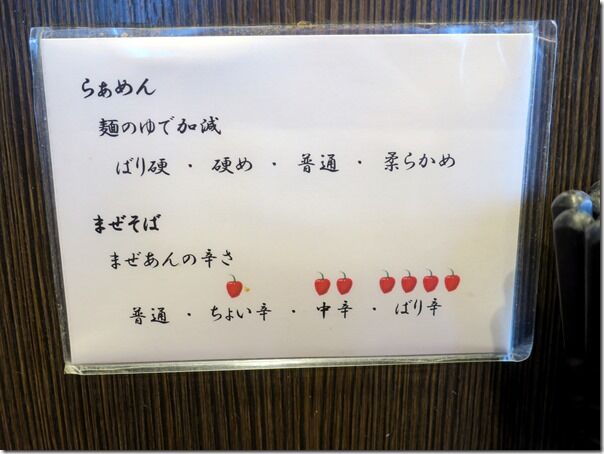 らぁめん
麺のゆで加減
ばり硬・硬め・普通・柔らかめ
まぜそば
まぜあんの辛さ
普通・ちょい辛・中辛・ばり辛